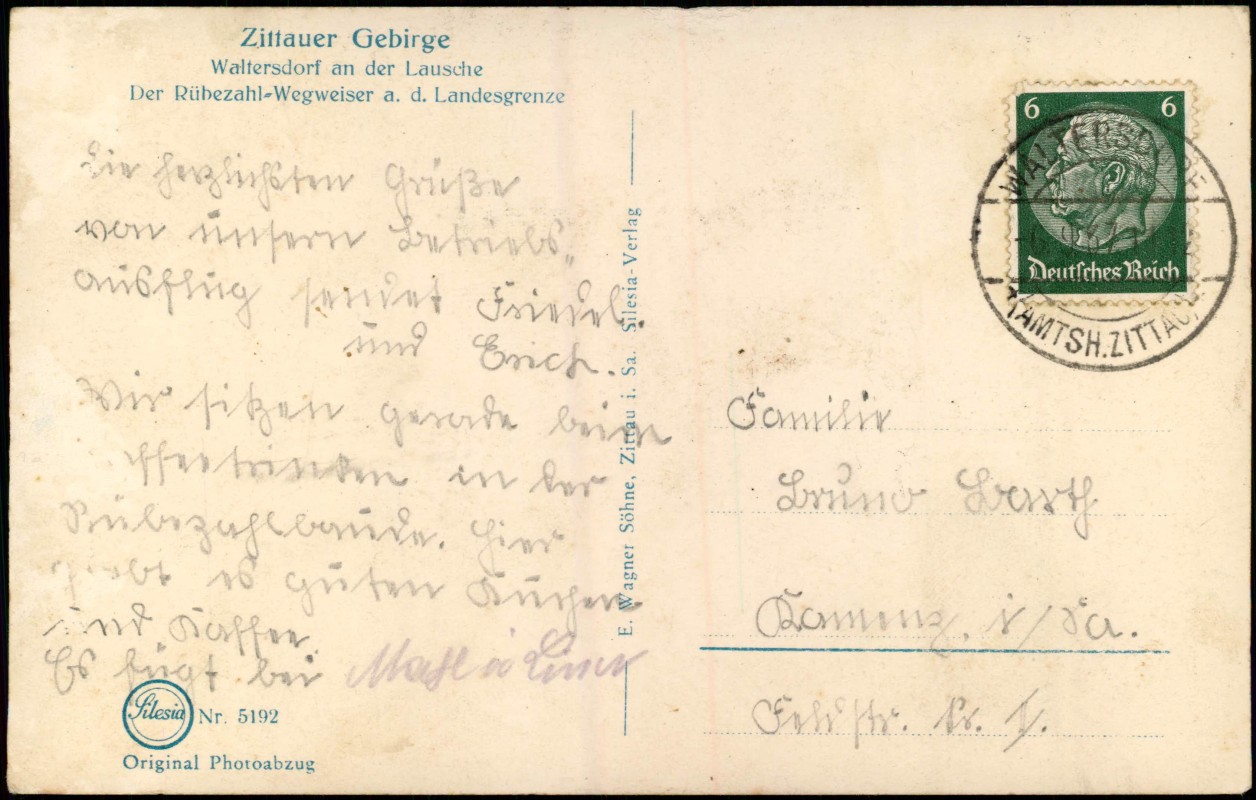 Zittauer Gebirge
Waltersdorf an der Lausche
Der Rübezahl-Wegweiser a. d. Landesgrenze
Die herzlichsten Grüße
von unsern Betriebs„
ausflug sendet Friedel.
und Erich.
Wir sitzen gerade beim
ffeetrinken in der
Rübezahlbaude. Hier
giebt es guten Kuchen
und Kaffee.
Es fügt bei
Silesia Nr. 5192
Original Photoabzug
E. Wagner Söhne, Zittau i. Sa. Silesia-Verlag
6 6
Deutsches Reich
WALTERSDORF
(AMTSH. ZITTAU)
Familie
Bruno Barth
Kamenz, i/Sa.
Feldstr. Nr.